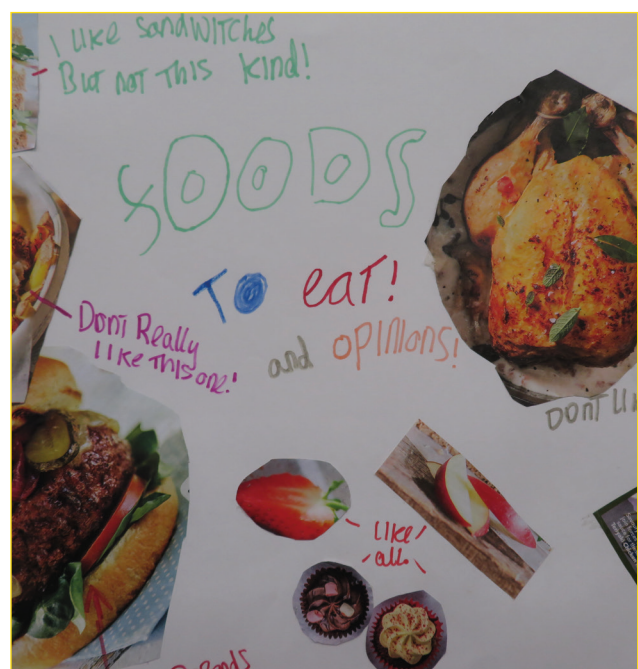 I LIKE SANDWITCHES
BUT NOT THIS KIND!
FOODS
TO eAT!
and OPINIONS!
DON'T Really
LIKE THIS one!
DON'T LI
LIKE
all.